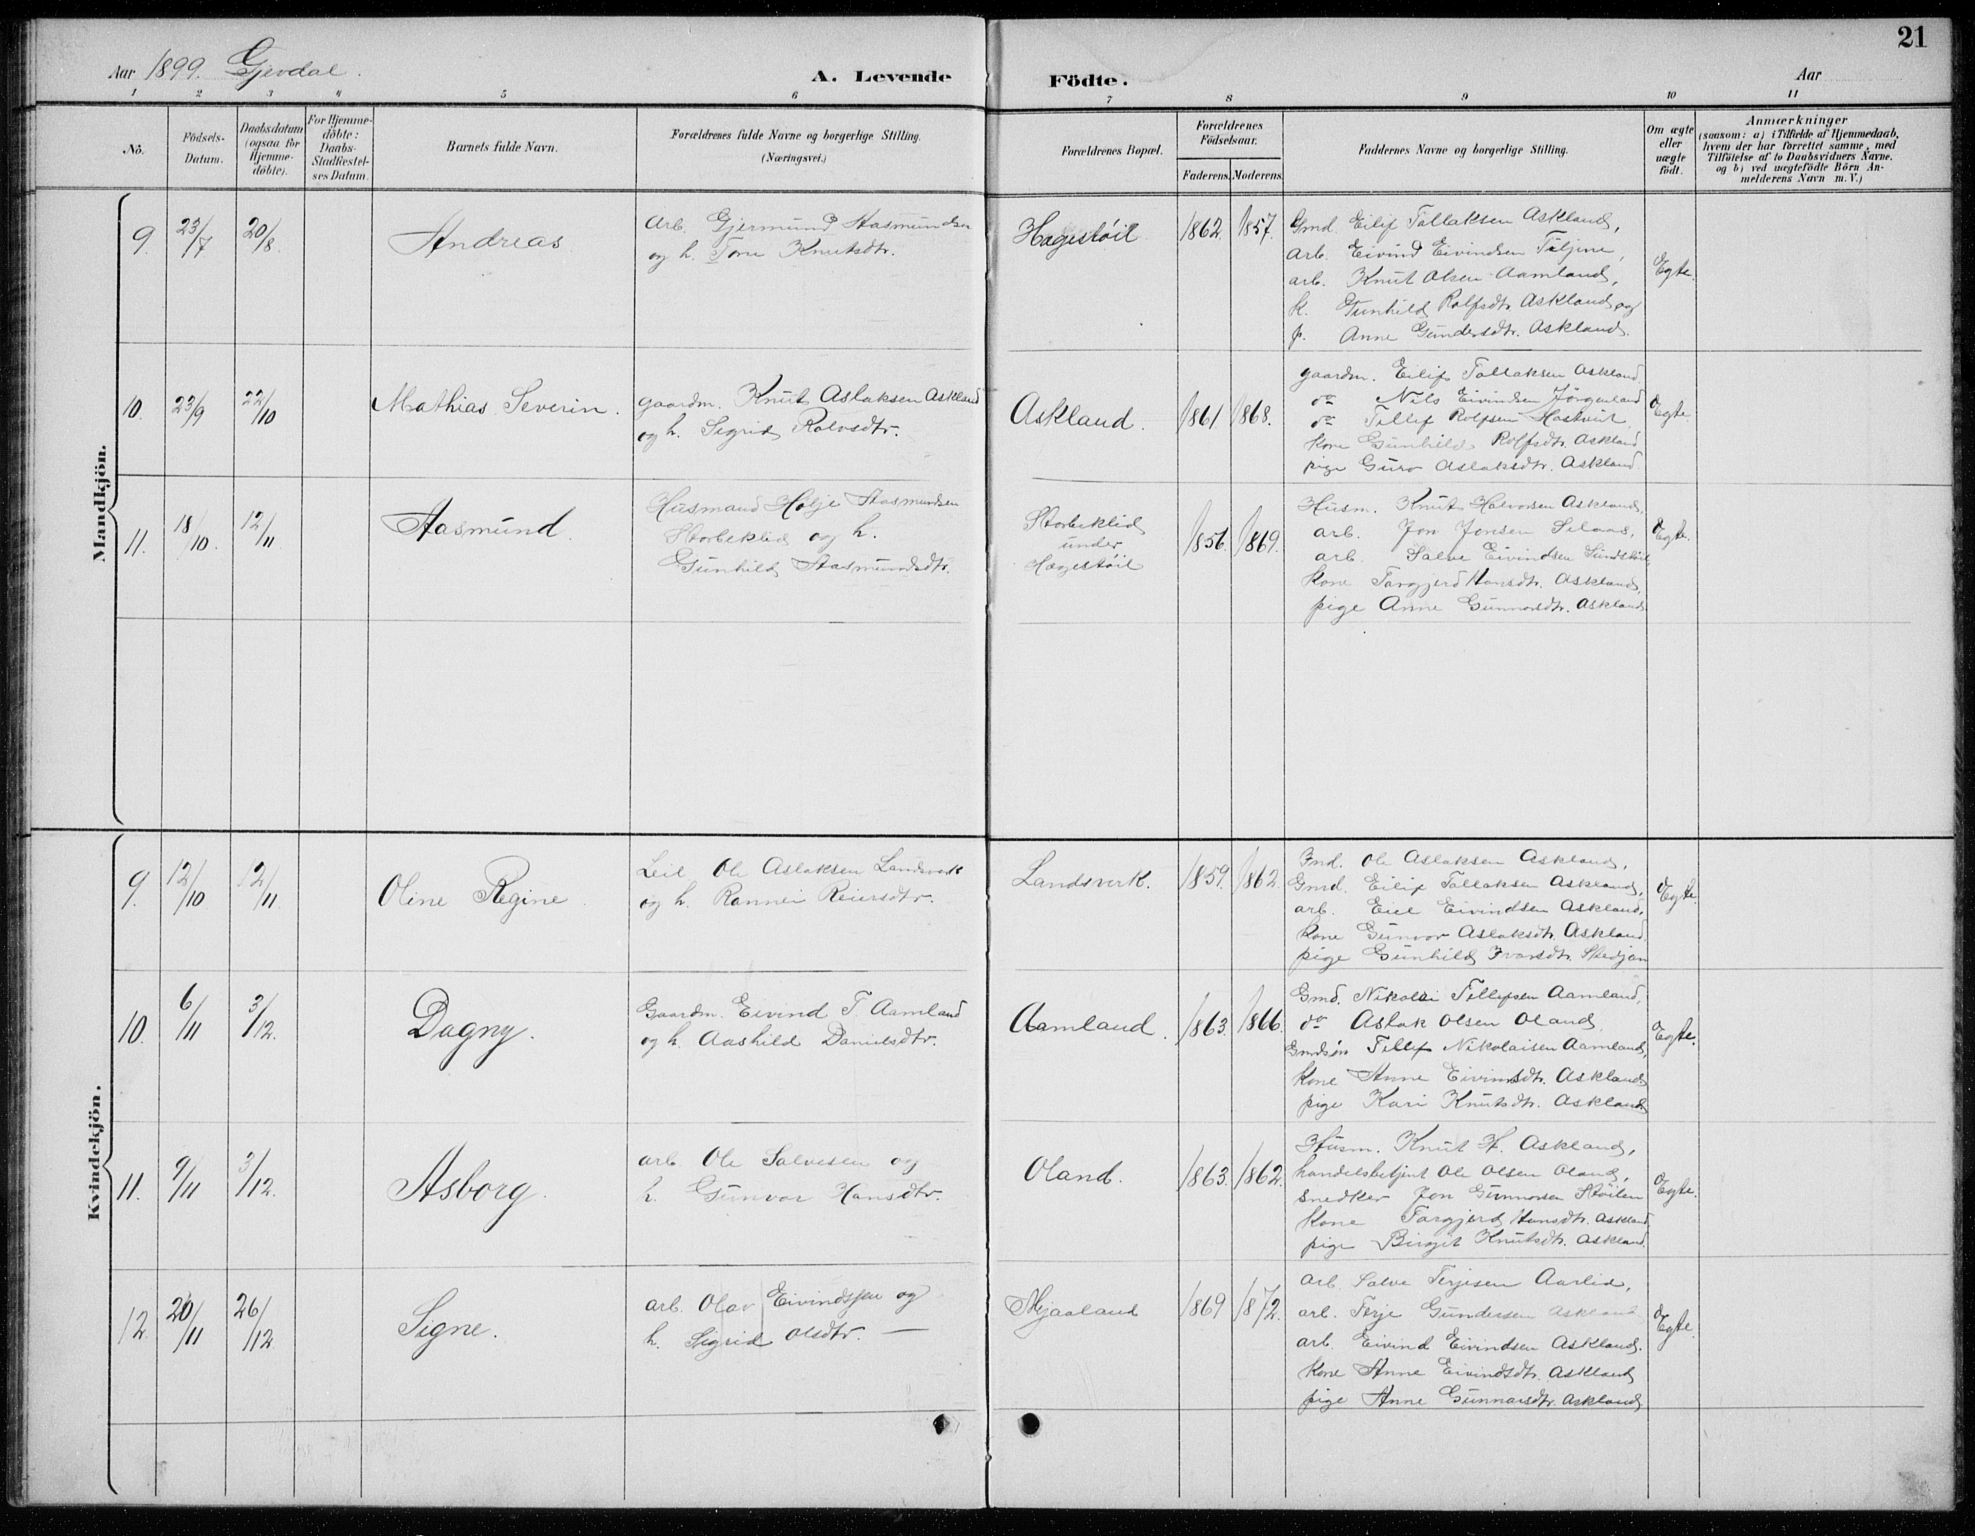 21
Aar 1899. Gjevdal. A. Levende Födte. Aar
1 2 3 4 5 6 7 8 9 10 11
Nö.
Födsels-
Datum.
Daabsdatum
(ogsaa för
Hjemme-
döbte).
For Hjemme-
döbte:
Daabs-
Stadfæstel-
ses Datum.
Barnets fulde Navn.
Forældrenes fulde Navne og borgerlige Stilling.
(Næringsvei.)
Forældrenes Bopæl.
Forældrenes
Födselsaar.
Faderens. Moderens.
Faddernes Navne og borgerlige Stilling.
Om ægte
eller
uægte
födt.
Anmærkninger
(saasom: a) i Tilfælde af Hjemmedaab,
hvem der har forrettet samme, med
Tilföielse af to Daabsvidners Navne,
og b) ved uægtefödte Börn An-
melderens Navn m. V.)
Mandkjön.
9. 23/7 20/8 Andreas.
Arb. Gjermund Aasmundsen
og h. Tone Knutsdtr.
Hagestöil 1862. 1857.
Gmd. Eilif Tallaksen Askland,
arb. Eivind Eivindsen Tiljine,
arb. Knut Olsen Aamland,
k. Gunhild Rolfsdtr. Askland og
p. Anne Gundersdtr. Askland.
Egte.
10. 23/9 22/10 Mathias Severin.
gaardm. Knut Aslaksen Askland
og h. Sigrid Rolvsdtr.
Askland. 1861 1868.
gaardm. Eilif Tallaksen Askland
do Nils Eivindsen Jörgenland
do Tellef Rolfsen Haskvit
kone Gunhild Rolfsdtr. Askland
pige Guro Aslaksdtr. Askland.
Egte.
11. 18/10. 12/11 Aasmund.
Husmand Holje Aasmundsen
Storbeklid og h.
Gunhild Aasmundsdtr.
Storbeklid
under
Hagestöil
1856. 1869.
Husm. Knut Halvorsen Askland,
arb. Jon Jonsen Selaas,
arb. Salve Eivindsen Sundstöil
kone Targjerd Hansdtr. Askland,
pige Anne Gunnarsdtr. Askland
Egte.
Kvindekjön.
9. 12/10 12/11. Oline Regine.
Leil. Ole Aslaksen Landsverk
og h. Rannei Reiersdtr.
Landsverk. 1859. 1862.
Fmd. Ole Aslaksen Askland,
Gmd. Eilif Tallaksen Askland,
arb. Eiel Eivindsen Askland,
kone Gunvor Aslaksdtr. Askland
pige Gunhild Ivarsdtr.
Egte.
10. 6/11 3/12. Dagny.
Gaardm. Eivind T. Aamland
og h. Aashild Danielsdtr.
Aamland. 1863. 1866.
Gmd. Nikolai Tellefsen Aamland,
do Aslak Olsen Oland,
Gmdsön Tellef Nikolaisen Aamland,
kone Anne Eivindsdtr. Askland
pige Kari Knutsdtr. Askland
Egte.
11. 9/11 3/12. Asborg.
arb. Ole Salvesen og
h. Gunvor Hansdtr.
Oland. 1863. 1862.
Husm. Knut H. Askland,
handelsbetjent Ole Olsen Oland,
snedker Jon Gunnarsen Stöilen
kone Targjerd Hansdtr. Askland
pige Birgit Knutsdtr. Askland.
Egte.
12. 20/11 26/12 Signe.
arb. Olav Eivindsen og
h. Sigrid Olsdtr. —
Mjaaland 1869 1872.
arb. Salve Terjesen Aarlid,
arb. Terje Gundersen Askland
arb. Eivind Eivindsen Askland.
kone Anne Eivindsdtr. Askland
pige Anne Gunnarsdtr. Askland
Egte.